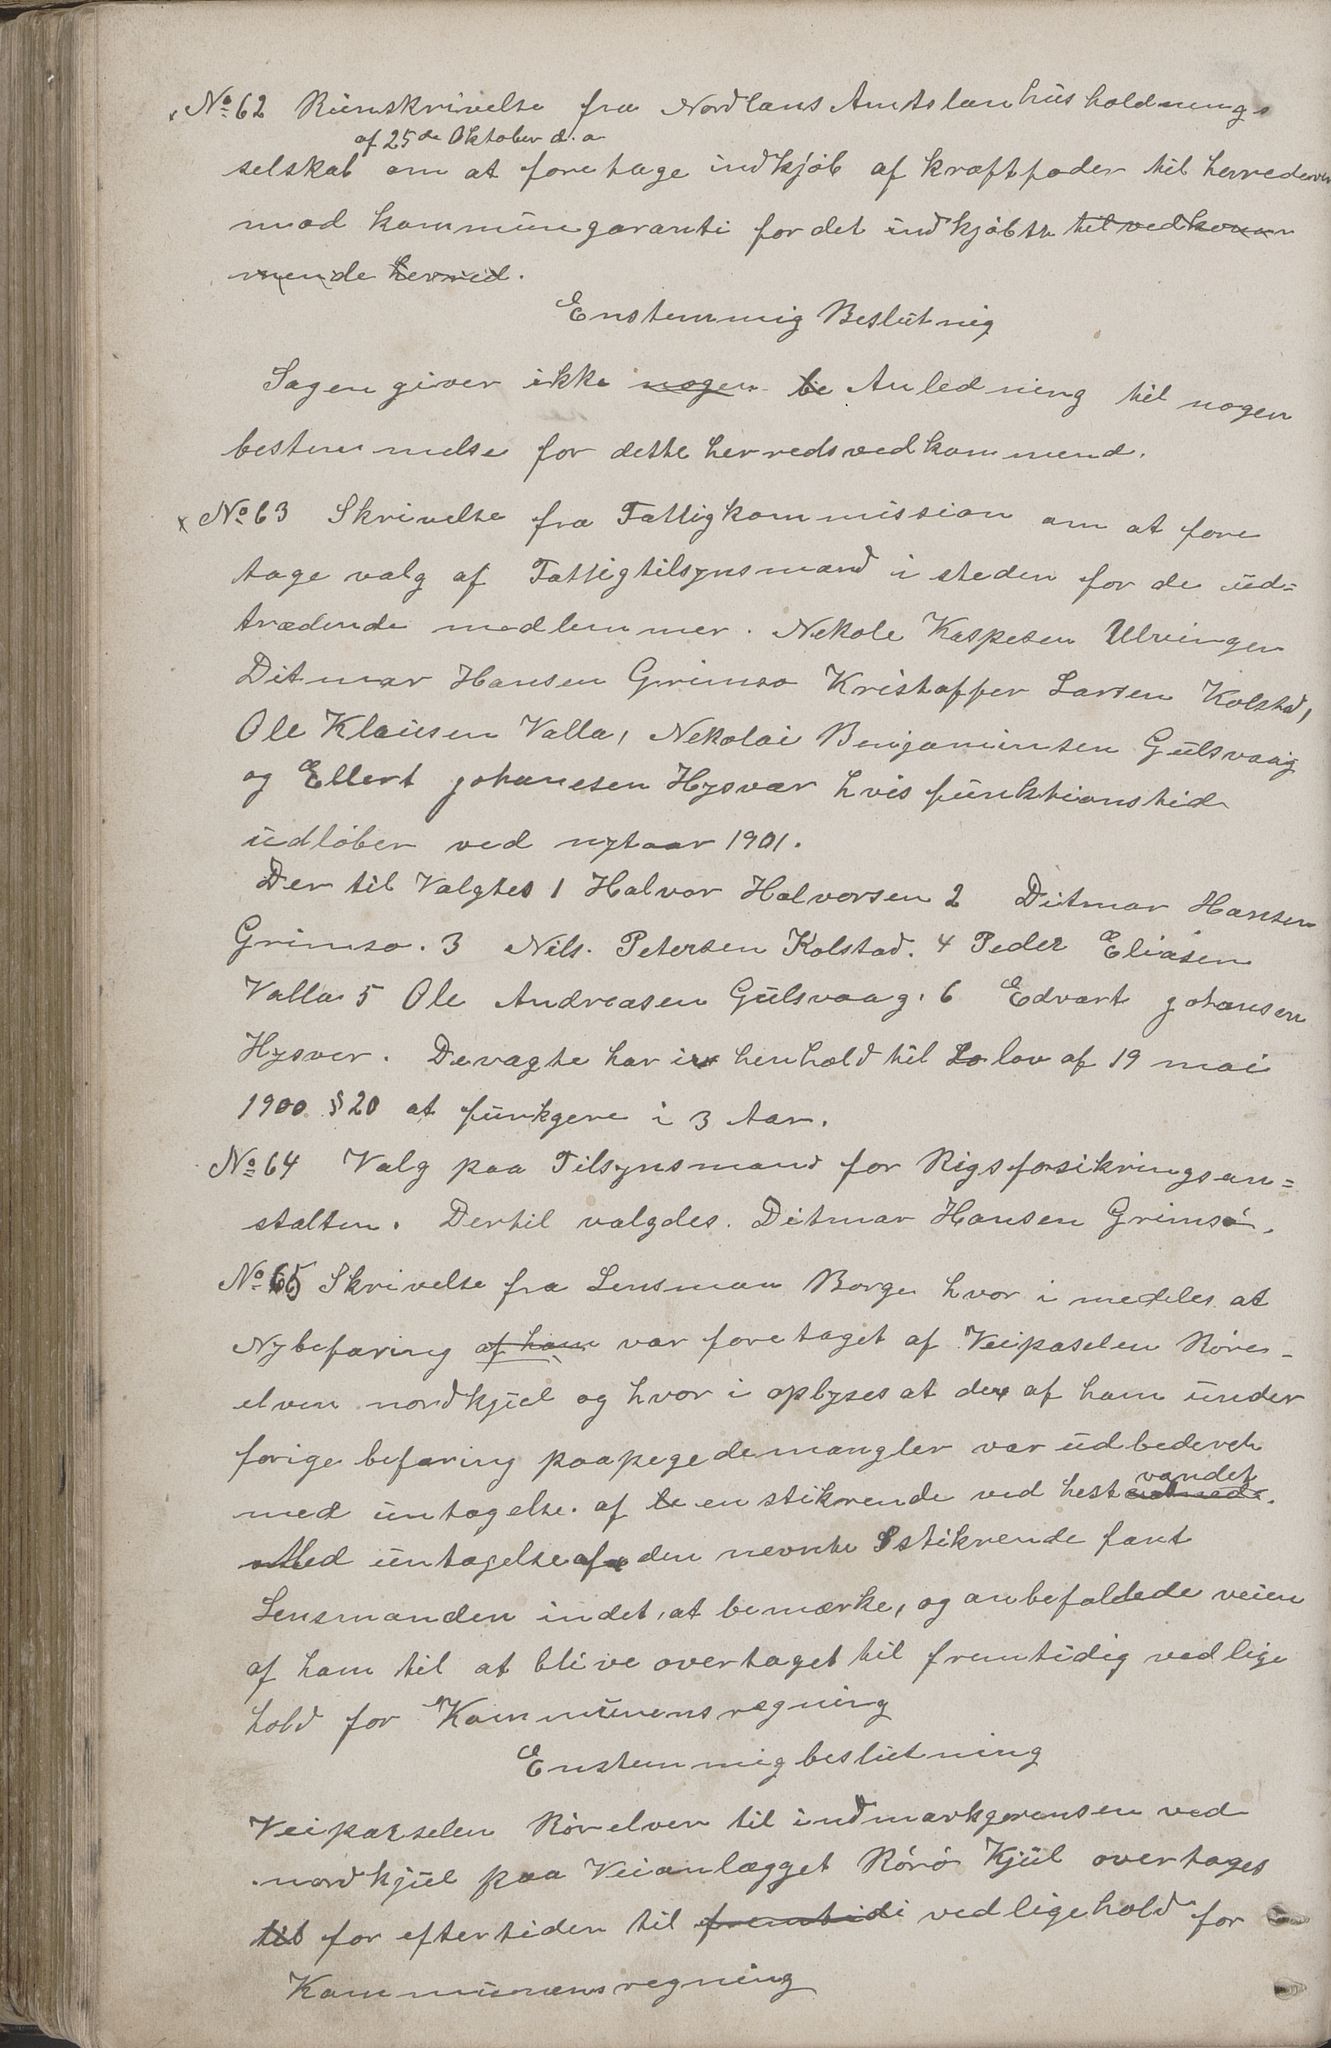 No 62 Runskrivelse fra Nordlans Amtslanhusholdnings
af 25de Oktober d.a
selskab om at foretage indkjøb af kraftfoder til herrederne
mod kommungaranti for det indkjøbte til vedkom
mende herred.
Enstemmig Beslutnig
Sagen giver ikke nogen be Anledning til nogen
bestemmelse for dette herreds vedkommend.
No 63 Skrivelse fra Fattigkommission om at fore
tage valg af Fattigtilsynsmænd i steden for de ud=
trædende medlemmer. Nekole Kaspesen Ulvingen
Ditmar Hansen Grimsø Kristoffer Larsen Kolstad,
Ole Klausen Valla, Nekolai Benjaminsen Gulsvaag
og Ellert Johanesen Hysvær hvis funktionstid
udløber ved nytaar 1901.
Der til Valgtes 1 Halvor Halvorsen 2 Ditmar Hansen
Grimsø. 3 Nils. Petersen Kolstad. 4 Peder Eliasen
Valla 5 Ole Andreasen Gulsvaag. 6 Edvart Johansen
Hysver. De vagte har i henhold til Lo lov af 19 mai
1900 § 20 at funkgere i 3 Aar.
No 64 Valg paa Tilsynsmand for Rigsforsikringsan=
stalten. Dertil valgdes. Ditmar Hansen Grimsø.
No 65 Skrivelse fra Lensman Borge hvor i medeles at
Nybefaring af ham var foretaget af Veiparselen Røre-
elven nordkjul og hvor i oplyses at de af ham under
forige befaring paapegede mangler var udbederet
med untagelse af te en stikrende ved hest vandet
Med untagelse af den nevnte Stikrende fant
Lensmanden indet at bemærke, og anbefaldede veien
af ham til at blive overtaget til fremtidig vedlige
hold for Kommunens regning
Enstemmig beslutning
Veiparselen Rørelven til indmarkgrensen ved
nordkjul paa Veianlægget Rørø Kjul overtages
til for eftertiden til fremtidi vedligehold for
Kommunens regning